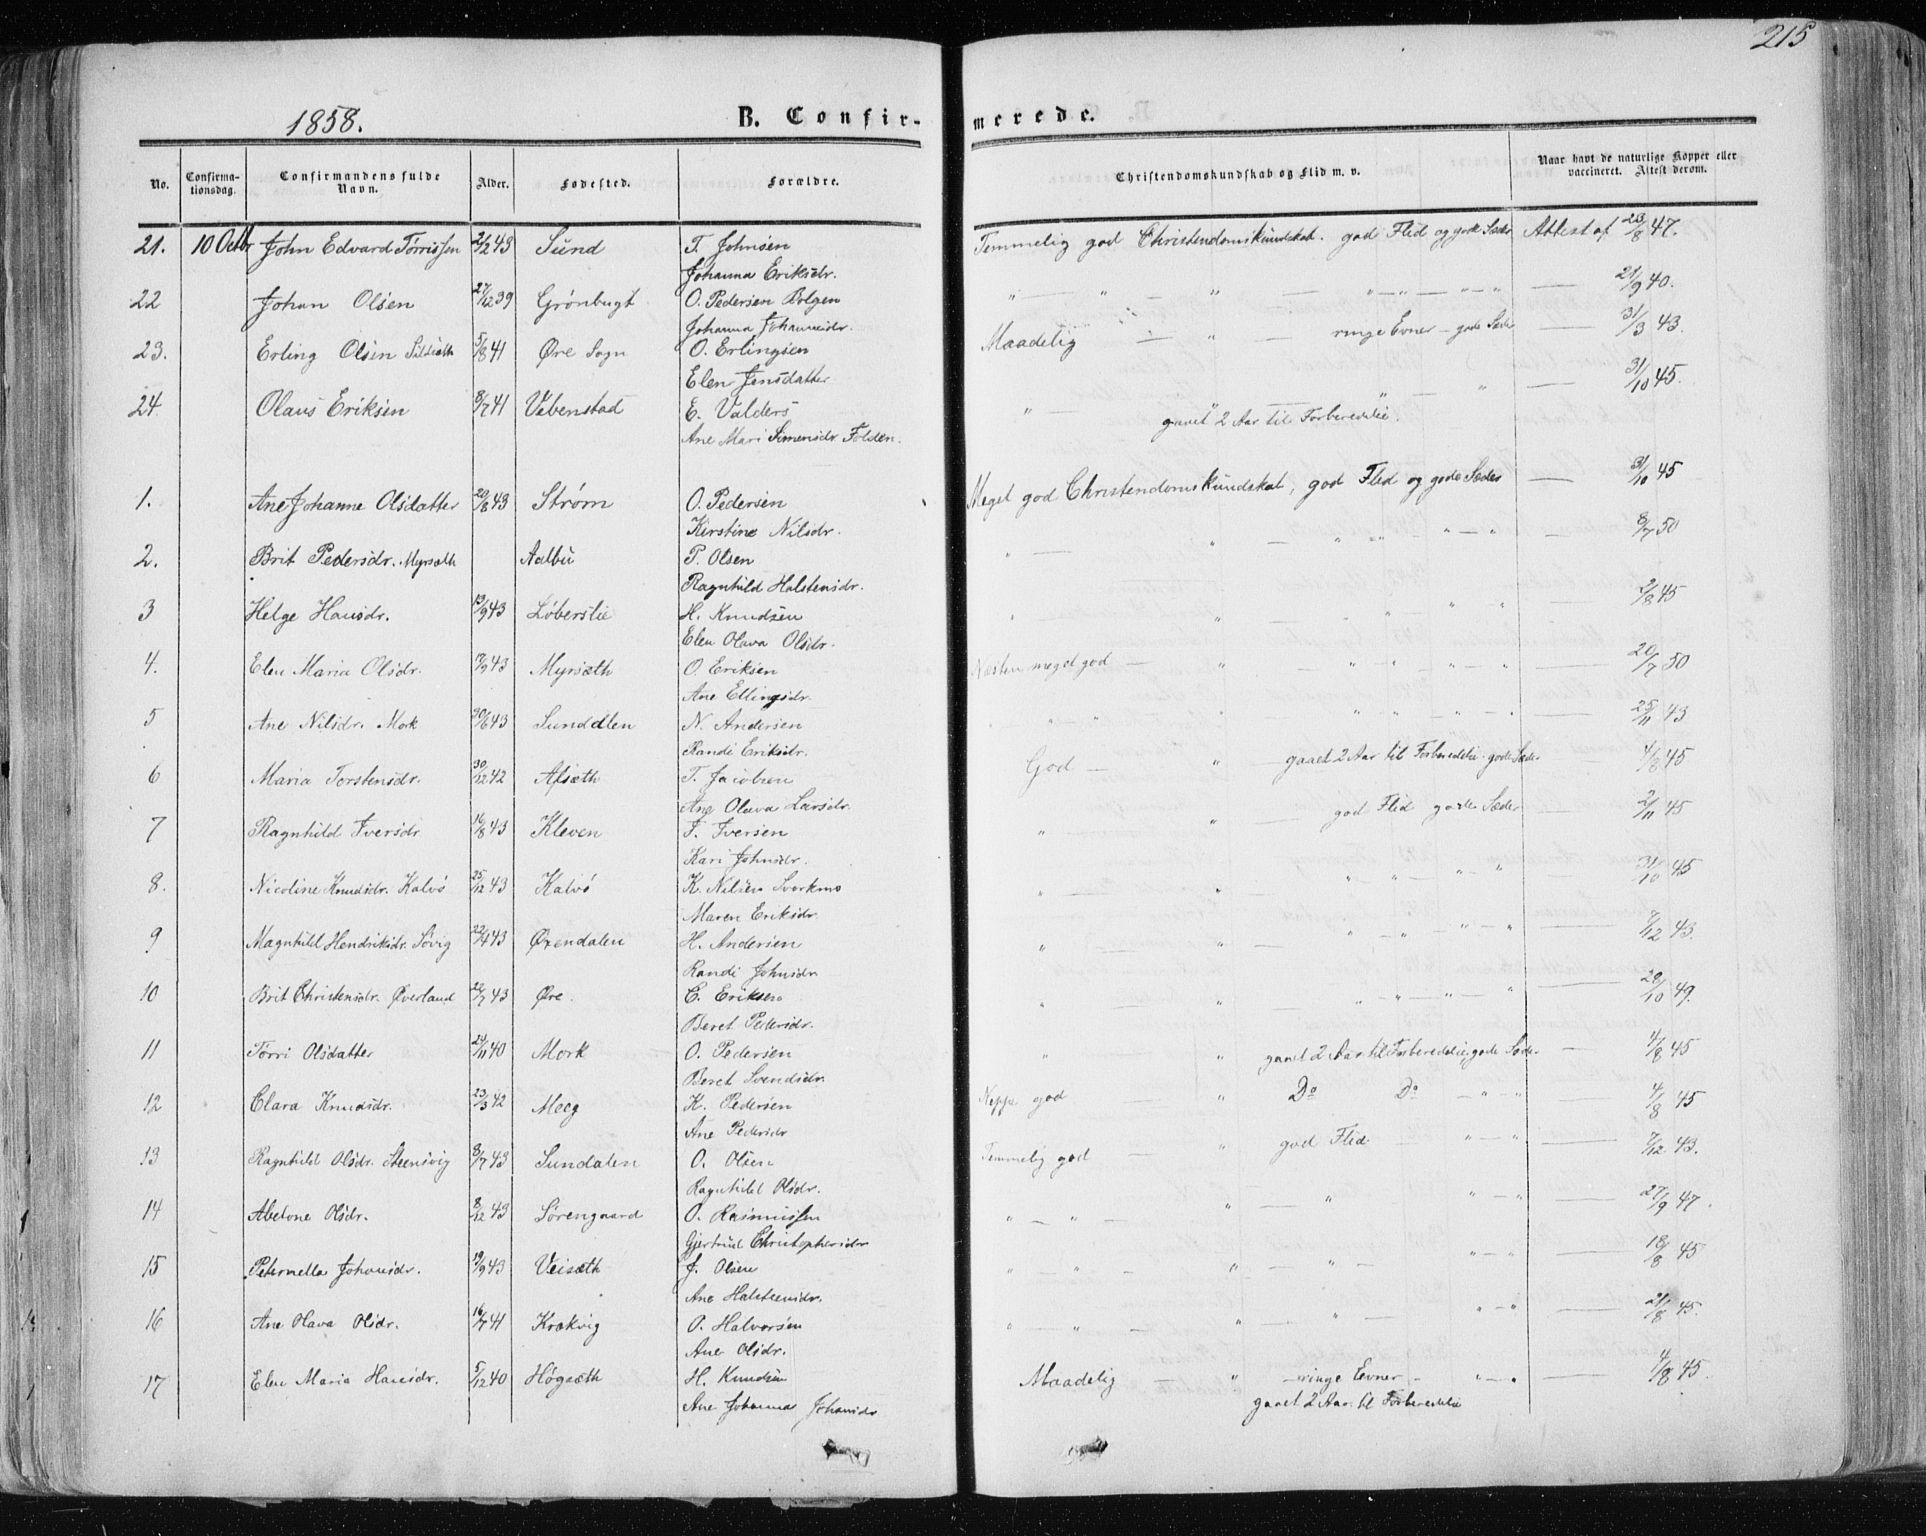 215
1858.
B. Confir-
merede.
No.
Confirma-
tionsdag.
Confirmandens fulde
Navn.
Alder.
Fødested.
Forældre.
Christendomskundskab og Flid m. v.
Naar havt de naturlige Kopper eller
vaccineret. Attest derom.
21. 10 Octbr John Edvard Tørrissen 2/2 43 Sund T. Johnsen Temmelig god Christendomskundskab. god Flid og gode Sæder Attest af 23/8 47.
Johanna Eriksdr.
22 Johan Olsen 27/12 39 Grønbugt O. Pedersen Bolgen " — " — " — " — " — " — " — 21/9 40.
Johanna Johannesdr.
23. Erling Olsen 5/8 41 Øre Sogn O. Erlingsen Maadelig — " — ringe Evner – gode Sæder — 31/3 43.
Elen Jensdatter
24. Olaus Eriksen 8/7 41 Vebenstad E. Valders " — " " — " — 31/10 45.
gaaet 2 Aar til Forberedelse.
Ane Mari Simensdr. Folden.
1. Ane Johanne Olsdatter 20/8 43 Strøm O. Pedersen Meget god Christendomskundskab, god Flid og gode Sæder — 31/10 45
Kirstine Nilsdr.
2. Brit Pedersdr. Myrsæth Aalbu P. Olsen " — " " " " — " 8/7 50
Ragnhild Halstensdr.
3 Helge Hansdr. 13/9 43 Løberslie H. Knudsen " — " " " — " — 2/8 45
Elen Olava Olsdr.
4. Elen Maria Olsdr. 17/9 43 Myrsæth O. Eriksen Næsten meget god — " " — " — " — " — 20/7 50
Ane Ellingsdr.
5 Ane Nilsdr. Mork 30/6 43 Sunddlen N. Andersen " — " " " — " — " — 25/11 43
Randi Eriksdr.
6 Maria Torstensdr. 30/12 42 Afsæth T. Jacobsen God — " — gaaet 2 Aar til Forberedelse. gode Sæder 4/8 45
Ane Olava Larsdr.
7 Ragnhild Iversdr. 16/8 43 Kleven I. Iversen " — " — god Flid gode Sæder — 2/11 45
Kari Johnsdr.
8. Nicoline Knudsdr. Kalvø 25/12 43 Kalvø K. Nilsen Svorkmo " — " " — " — " — " 31/10 45
Maren Eriksdr.
9 Magnhild Hendriksdr. Søvig 22/4 43 Øxendalen H. Andersen " — " " — " — " — " — 7/12 43.
Randi Johnsdr
10 Brit Christensdr. Øverland 22/7 43 Øre. C. Eriksen " — " " — " — " — " — 20/10 49.
Beret Pedersdr.
11 Torri Olsdatter 29/11 40 Mork O. Pedersen " " gaaet 2 Aar til Forberedelse, gode Sæder — 4/8 45
Beret Svendsdr.
12 Clara Knudsdr. 23/3 42 Meeg K. Pedersen Neppe god — " Do Do — " — " — 4/8 45
Ane Pedersdr
13 Ragnhild Olsdr. Steensvig 8/7 43 Sundalen O. Olsen Temmelig god — " god Flid " — " — 7/12 43.
Ragnhild Olsdr.
14 Abelone Olsdr. 8/12 43 Sørengaard O. Rasmussen " — " — " — " " — " — 27/9 47.
Gjertrud Christophersdr
15 Peternella Johansdr. 19/9 43 Veisæth J. Olsen " " — " — " — " " — " — 18/8 45
Ane Halsteensdr.
16 Ane Olava Olsdr. 16/7 41 Krakvig O. Halvorsen " — " — " — " — " — 21/8 45.
Ane Olsdr.
17 Elen Maria Hansdr. 5/12 40 Høgsæth H. Knudsen Maadelig — " – ringe Evner – " — " — 4/8 45.
Ane Johannas Johansdr gaaet 2 Aar. til Forberedelse